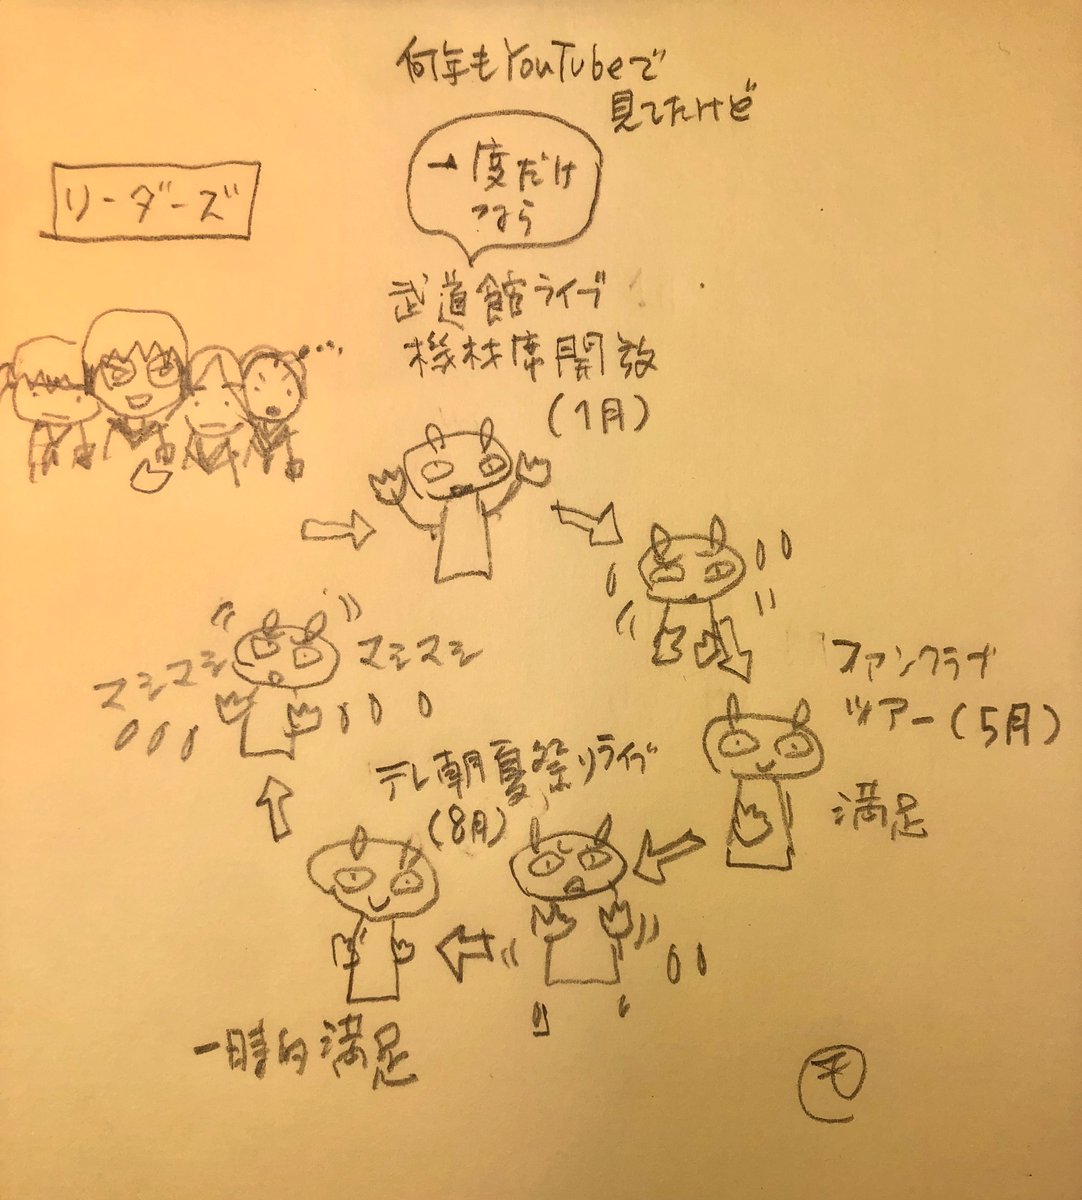 何年もYouTubeで
見てたけど
一度だけ
なら
リーダーズ
武道館ライブ
機材席開放
(1月)
ファンクラブ
ツアー(5月)
満足
テレ朝夏祭りライブ
(8月)
一時的満足
マシマシ
マシマシ
も